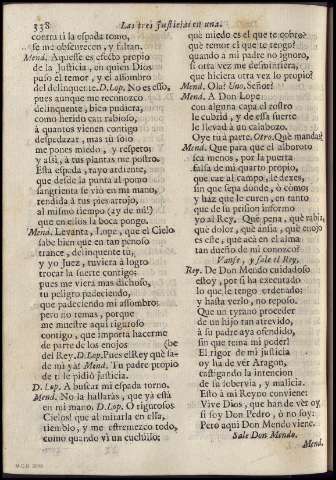 338 Las tres Justicias en una.
contra tì la espada tomo,
se me obscurecen, y faltan.
Mend. Aquesse es efecto propio
de la Justicia, en quien Dios
puso el temor, y el assombro
del delinquente. D. Lop. No es esso,
pues aunque me reconozco
delinquente, bien pudiera,
como herido can rabioso,
à quantos vienen contigo
despedazar, mas tù solo
me pones miedo, y respeto;
y assi, à tus plantas me postro.
Esta espada, rayo ardiente,
que desde la punta al pomo
sangrienta se viò en mi mano,
rendida à tus pies arrojo,
al mismo tiempo (ay de mi!)
que en ellos la boca pongo.
Mend. Levanta, Lope, que el Cielo
sabe bien que en tan penoso
trance, delinquente tù,
y yo Juez, tuviera à logro
trocar la suerte contigo:
pues me viera mas dichoso,
tu peligro padeciendo,
que padeciendo mi assombro:
pero no temas, porque
me muestre aqui rigoroso
contigo, que importa hacerme
de parte de los enojos (be
del Rey. D. Lop. Pues el Rey què sa-
de mi yà? Mend. Tu padre propio
de tì le pidiò justicia.
D. Lop. A buscar mi espada torno.
Mend. No la hallaràs, que yà està
en mi mano. D. Lop. O rigorosos
Cielos! que al mirarla en ella,
tiemblo, y me estremezco todo,
como quando vi un cuchillo;
què miedo es el que te cobro?
què temor el que te tengo?
quando à mi padre no ignoro,
si otra vez me desmintiera,
que hiciera otra vez lo propio?
Mend. Ola? Uno. Señor?
Mend. A Don Lope
con alguna capa el rostro
le cubrid, y de essa suerte
le llevad à un calabozo.
Oye tù à parte. Otro. Què manda?
Mend. Que para que el alboroto
sea menos, por la puerta
falsa de mi quarto propio,
que cae al campo, le dexes,
sin que sepa donde, ò còmo;
y haz que le curen, en tanto
que de su prision informo
yo al Rey. Què pena, què rabia,
què dolor, què ansia, què enojo
es este, que acà en el alma
tan dueño de mì conozco?
Vanse, y sale el Rey.
Rey. De Don Mendo cuidadoso
estoy, por si ha executado
lo que le tengo ordenado:
y hasta verlo, no reposo.
Que un tyrano proceder
de un hijo tan atrevido,
à su padre aya ofendido,
sin que tema mi poder!
El rigor de mi justicia
oy ha de vèr Aragon,
castigando la intencion
de su sobervia, y malicia.
Esto à mi Reyno conviene:
Vive Dios, que han de vèr oy,
si soy Don Pedro, ò no soy:
Pero aqui Don Mendo viene.
Sale Don Mendo.
Mend.